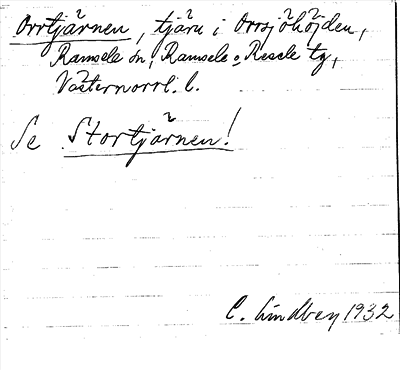 Orrtjärnen, tjärn i Orrsjöhöjden,
Ramsele sn, Ramsele o Resele tg,
Västernorrl. l.
Se Stortjärnen!
C. Lindberg 1932